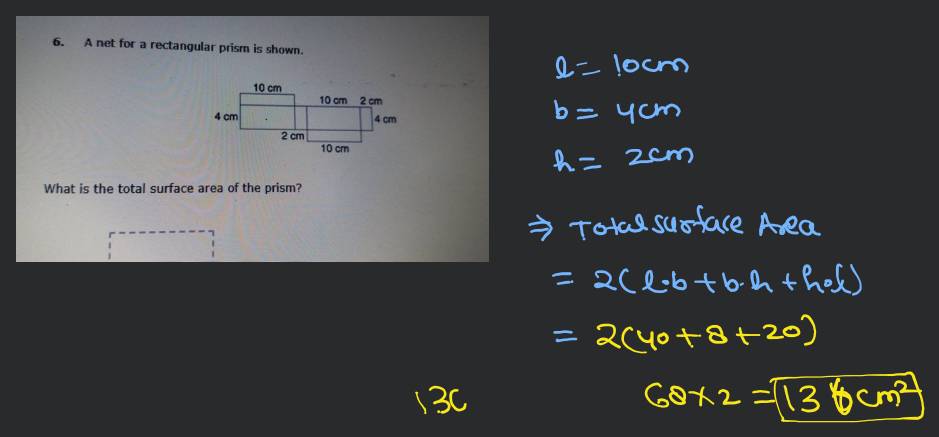 6. A net for a rectangular prism is shown.
10 cm
10 cm 2 cm
4 cm
4 cm
2 cm
10 cm
What is the total surface area of the prism?
l = 10cm
b = 4cm
h = 2cm
⇒ Total surface Area
= 2(l·b + b·h + h·l)
= 2(40 + 8 + 20)
68 × 2 = 136 cm²
136